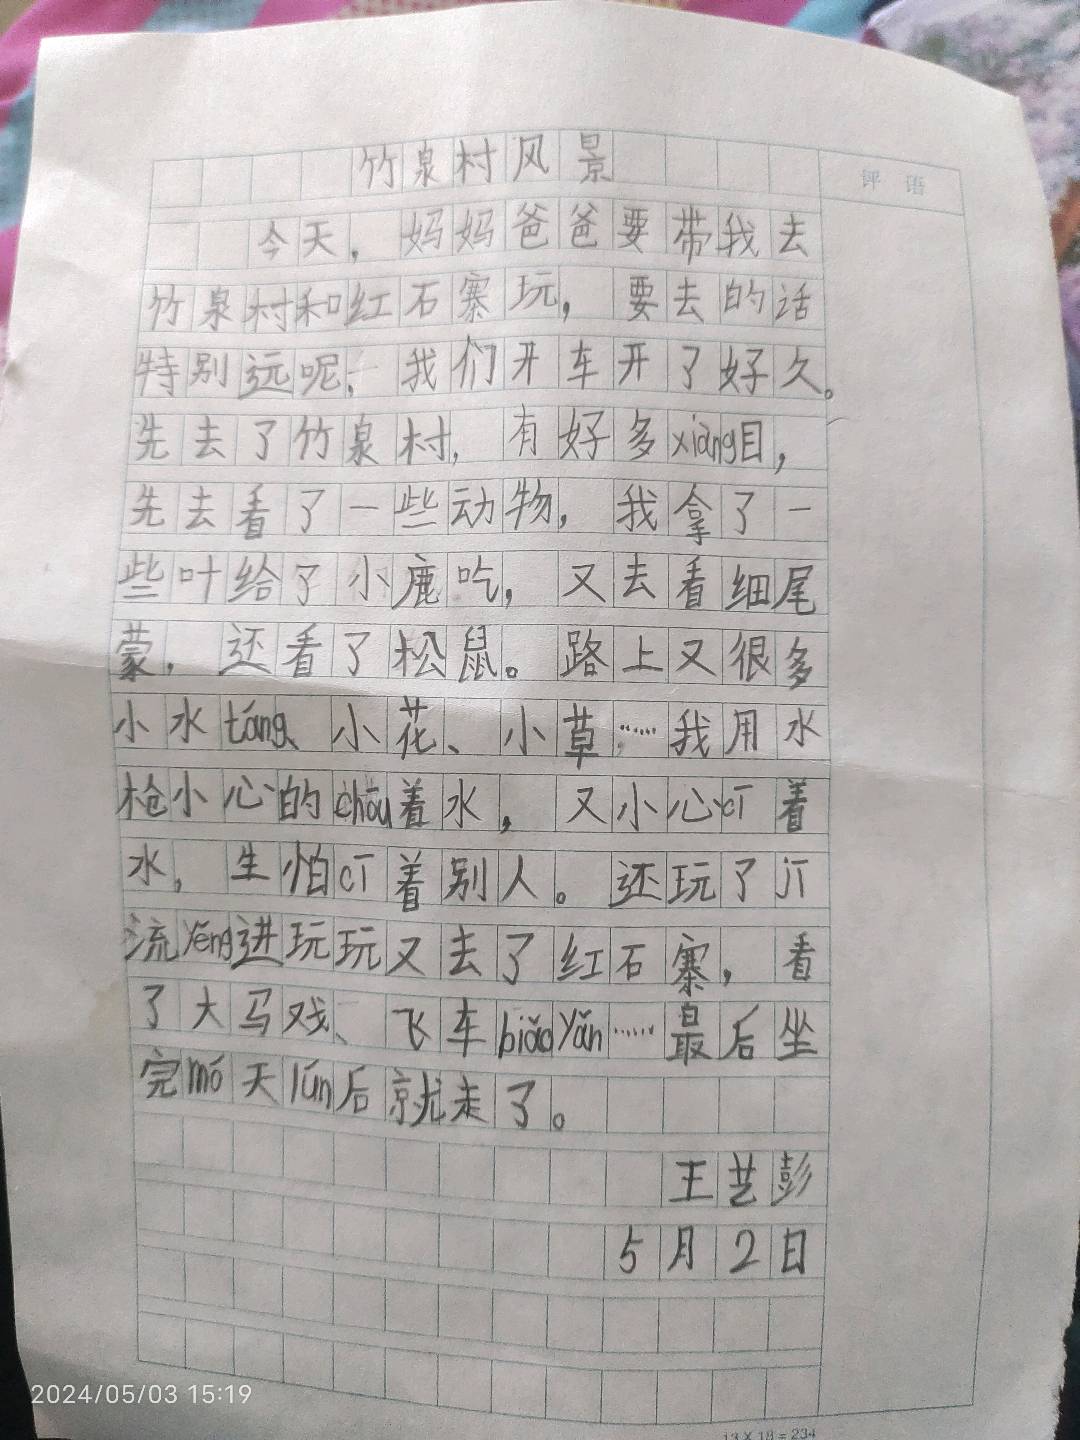 竹泉村风景
评 语
今天，妈妈爸爸要带我去
竹泉村和红石寨玩，要去的话
特别远呢，我们开车开了好久。
先去了竹泉村，有好多xiàng目，
先去看了一些动物，我拿了一
些叶给了小鹿吃，又去看细尾
蒙，还看了松鼠。路上又很多
小水táng、小花、小草……我用水
枪小心的chōu着水，又小心cī着
水，生怕cī着别人。还玩了jī
流yǒng进玩玩又去了红石寨，看
了大马戏、飞车biǎoyǎn……最后坐
完mó天lún后就走了。
王艺彭
5月2日
2024/05/03 15:19
13×18=234